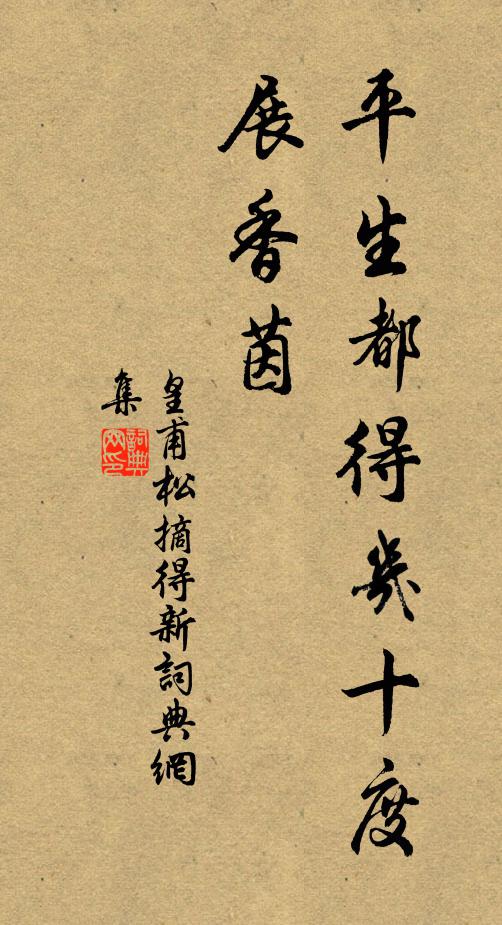 平生都得幾十度
展香茵
皇甫松摘得新詞典網
集
詞典
網印